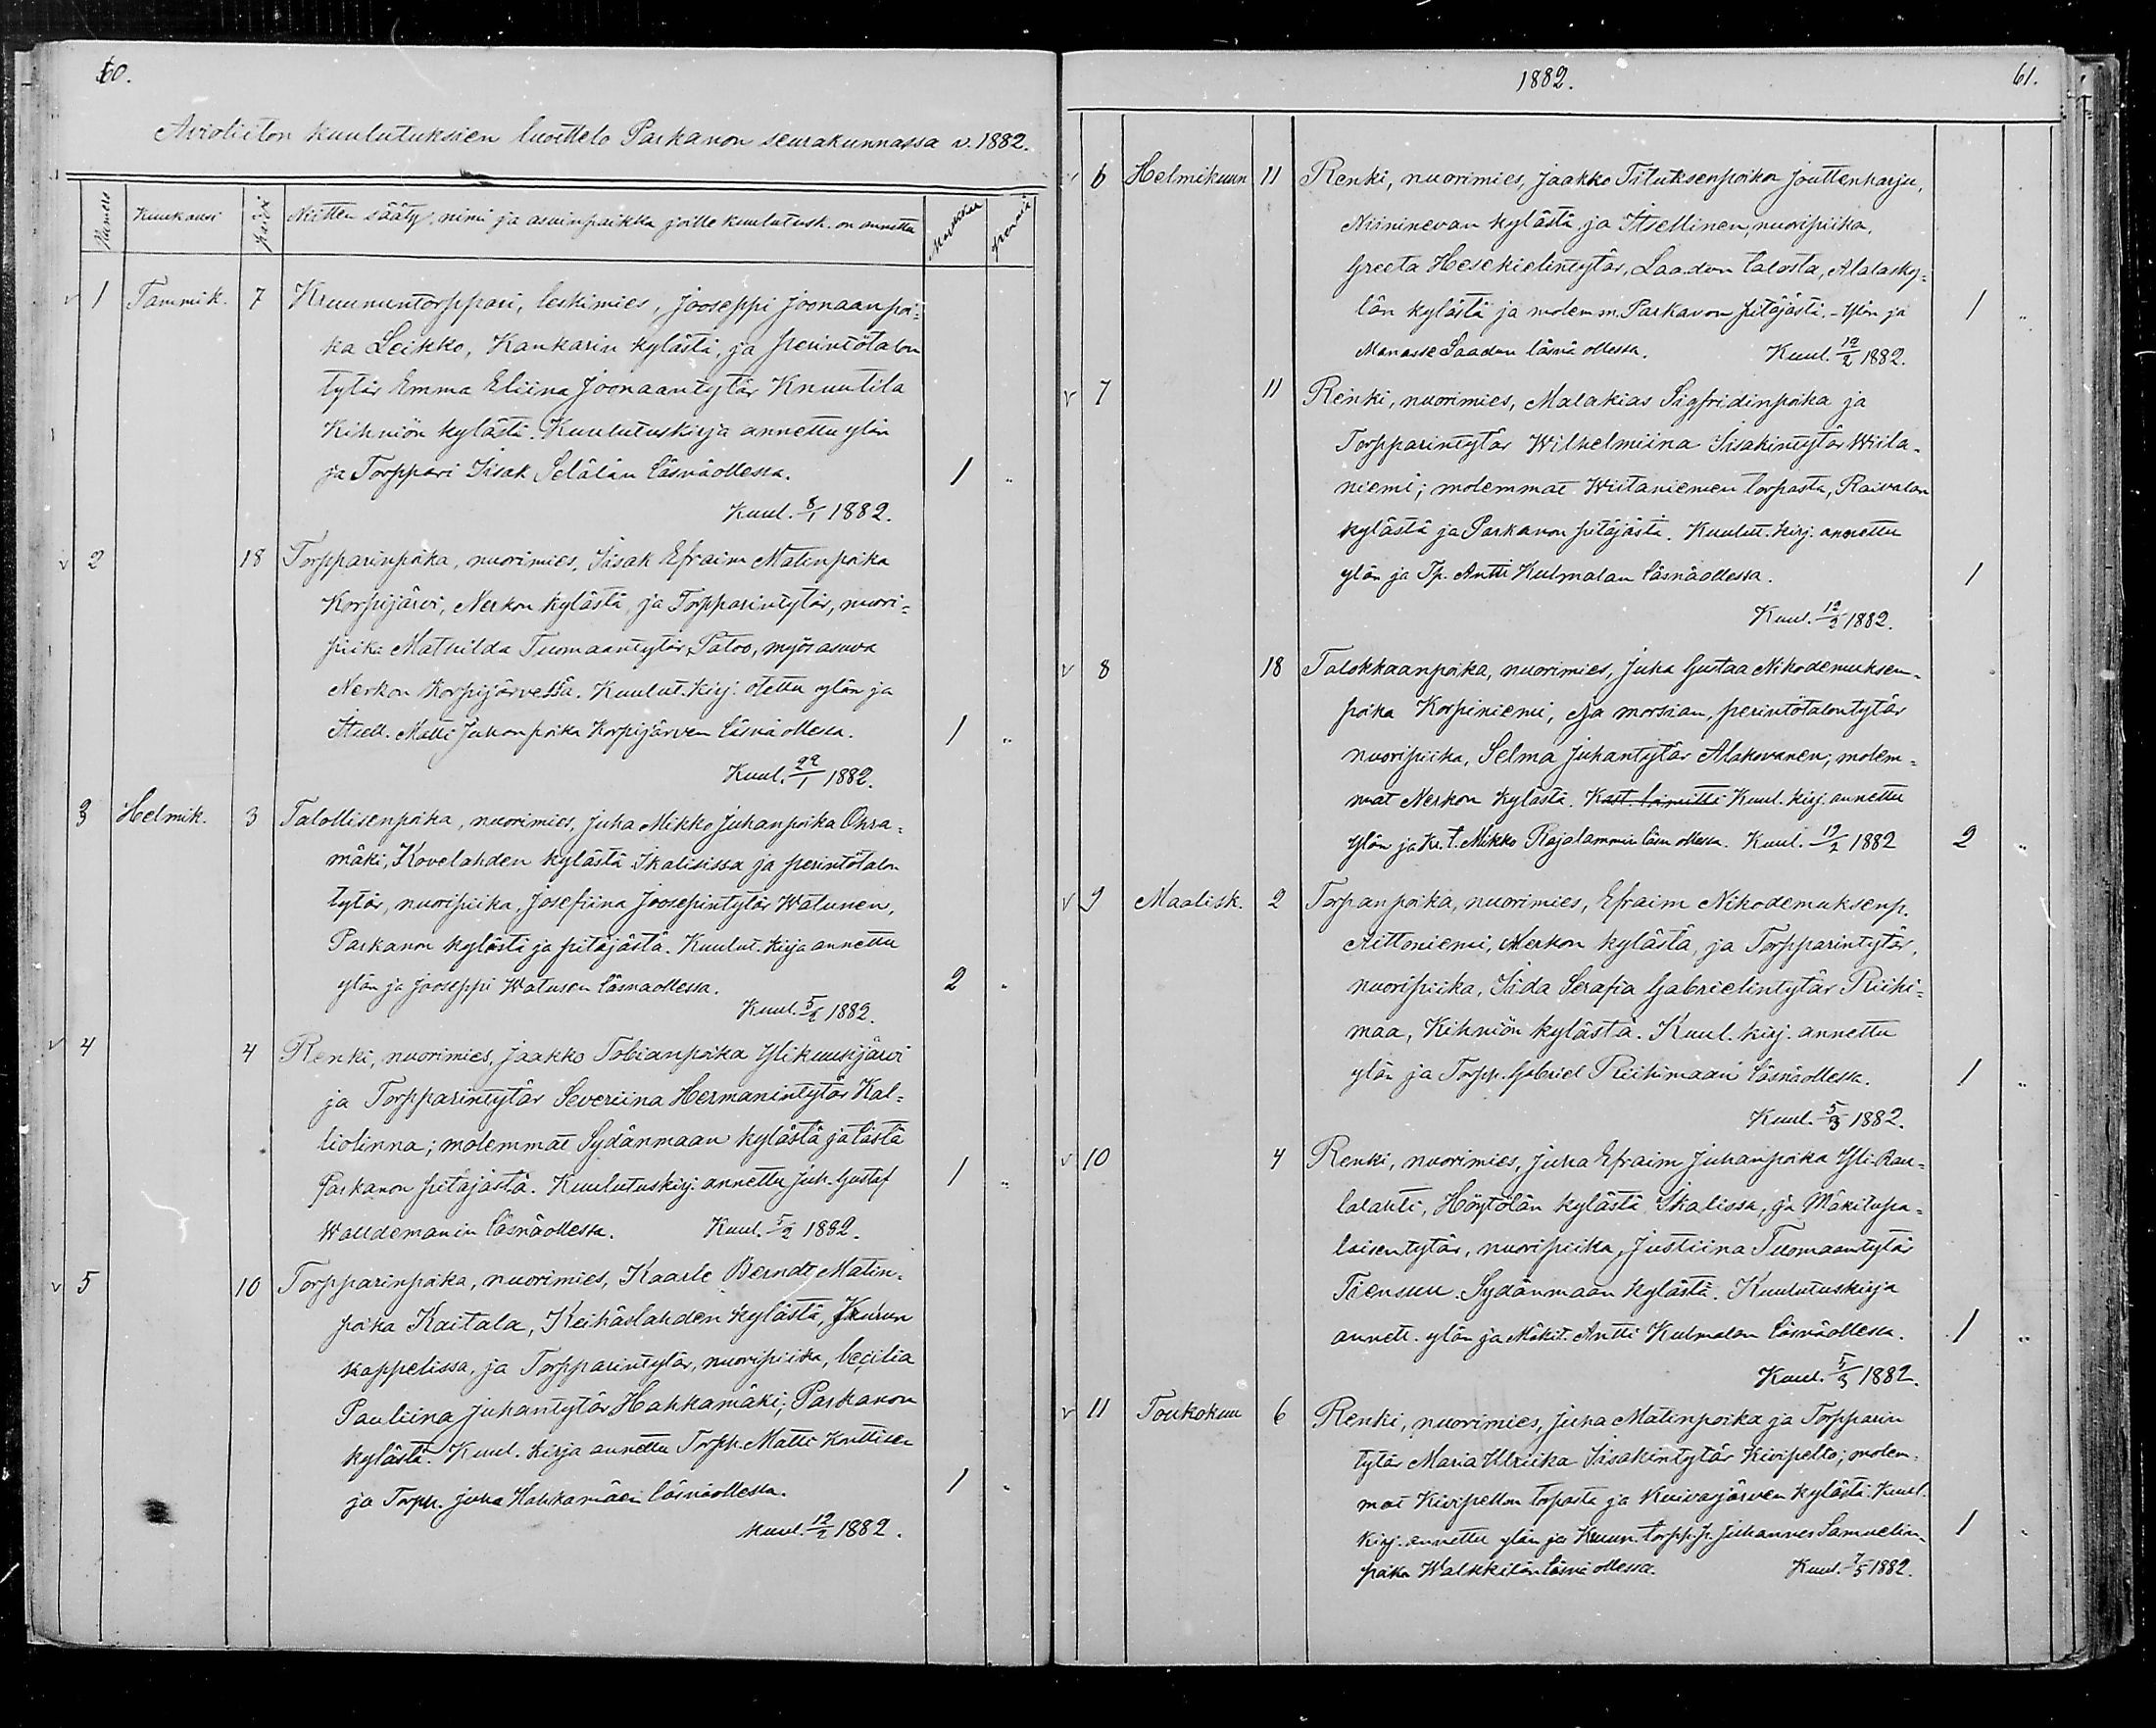 60.
Avioliiton kuulutuksien luettelo Parkanon seurakunnassa v. 1882.
Numero Kuukausi Päivä Kitten sääty, nimi ja asuinpaikka joille kuulutusk. on annettu Markkaa Penniä
v 1 Tammik. 7 Kruununtorppari, leskimies, Jooseppi Joonaanpoi-
ka Leikko, Kankarin kylästä, ja perintötalon
tytär Emma Eliina Joonaantytär Knuutila
Kihniön kylästä. Kuulutuskirja annettu ylän
ja Torppari Iisak Selälän läsnäollessa. 1 "
Kuul. 8/1 1882.
v 2 18 Torpparinpoika, nuorimies, Iisak Efraim Matinpoika
Korpijärvi, Nerkon kylästä, ja Torpparintytär, nuori-
piika Mathilda Tuomaantytär Patoo, myös asuva
Nerkon Korpijärvessä. Kuulut. kirj. otettu ylän ja
Itsell. Matti Juhonpoika Korpijärven läsnä ollessa. 1 "
Kuul. 22/1 1882.
3 Helmik. 3 Talollisenpoika, nuorimies, Juha Mikko Juhanpoika Ohra-
mäki, Kovelahden kylästä Ikalisissa ja perintötalon
tytär, nuoripiika, Josefiina Joosepintytär Watunen,
Parkanon kylästä ja pitäjästä. Kuulut. kirja annettu
ylän ja Jooseppi Watusen läsnäollessa. 2 "
Kuul. 5/2 1882.
v 4 4 Renki, nuorimies, Jaakko Tobianpoika Ylikuusijärvi
ja Torpparintytär Severiina Hermanintytär Kal-
liolinna; molemmat Sydänmaan kylästä ja tästä
Parkanon pitäjästä. Kuulutuskirj. annettu Juh. Gustaf 1 "
Walldemanin läsnäollessa. Kuul. 5/2 1882.
v 5 10 Torpparinpoika, nuorimies, Kaarle Berndt Matin-
poika Kaitala, Keihäslahden kylästä, Kurun
kappelissa, ja Torpparintytär, nuoripiika, Cecilia
Pauliina Juhantytär Hahkamäki; Parkanon
kylästä. Kuul. kirja annettu Torpp. Matti
ja Torpp. Juha Hahkamäen läsnäollessa. 1 "
Kuul. 12/2 1882.
1882. 61.
v 6 Helmikuun 11 Renki, nuorimies, Jaakko Tituksenpoika Jouttenharju,
Niininevan kylästä ja Itsellinen, nuoripiika,
Greeta Hesekielintytär, Laadun talosta, Alalasky-
län kylästä ja molemm. Parkanon pitäjästä. - Ylän ja 1 "
Manasse Laadun läsnä ollessa. Kuul. 12/2 1882.
v 7 11 Renki, nuorimies, Malakias Sigfridinpoika ja
Torpparintytär Wilhelmiina Iisakintytär Wiita-
niemi; molemmat Wiitaniemen torpasta, Raivalan
kylästä ja Parkanon pitäjästä. Kuulut. kirj. annettu
ylän ja Tp. Antti Kulmalan läsnäollessa. 1
Kuul. 12/2 1882.
v 8 18 Talokkaanpoika, nuorimies, Juha Gustaa Nikodemuksen-
poika Korpiniemi, ja morsian, perintötalontytär
nuoripiika, Selma Juhantytär Alakovanen; molem-
mat Nerkon kylästä. Kuul. kirj. annettu
Ylän ja Kr. t. Mikko Rajalammin läsn ollessa. Kuul. 19/2 1882 2 "
v 9 Maalisk. 2 Torpanpoika, nuorimies, Efraim Nikodemuksenp.
Aittoniemi, Nerkon kylästä, ja Torpparintytär,
nuoripiika, Iida Serafia Gabrielintytär Riihi-
maa, Kihniön kylästä. Kuul. kirj. annettu
ylän ja Torpp. Gabriel Riihimaan läsnäollessa. 1 "
Kuul. 5/3 1882.
v 10 4 Renki, nuorimies, Juha Efraim Juhanpoika Yli-Rau-
lalahti, Höytölän kylästä Ikalissa, ja Mäkitupa-
laisentytär, nuoripiika, Justiina Tuomaantytär
Tiensuu. Sydänmaan kylästä. Kuulutuskirja
annett. ylän ja Mäkit. Antti Kulmalan läsnäollessa. 1 "
Kuul. 5/3 1882.
v 11 Toukokuu 6 Renki, nuorimies, Juha Matinpoika ja Torpparin
tytär Maria Ulriika Iisakintytär Kivipelto; molem-
mat Kivipellon torpasta ja Kuivasjärven kylästä. Kuul.
kirj. annettu ylän ja Kruun. torpp. p. Juhannes Samuelin- 1 "
poika Walkkilan läsnä ollessa. Kuul. 7/5 1882.